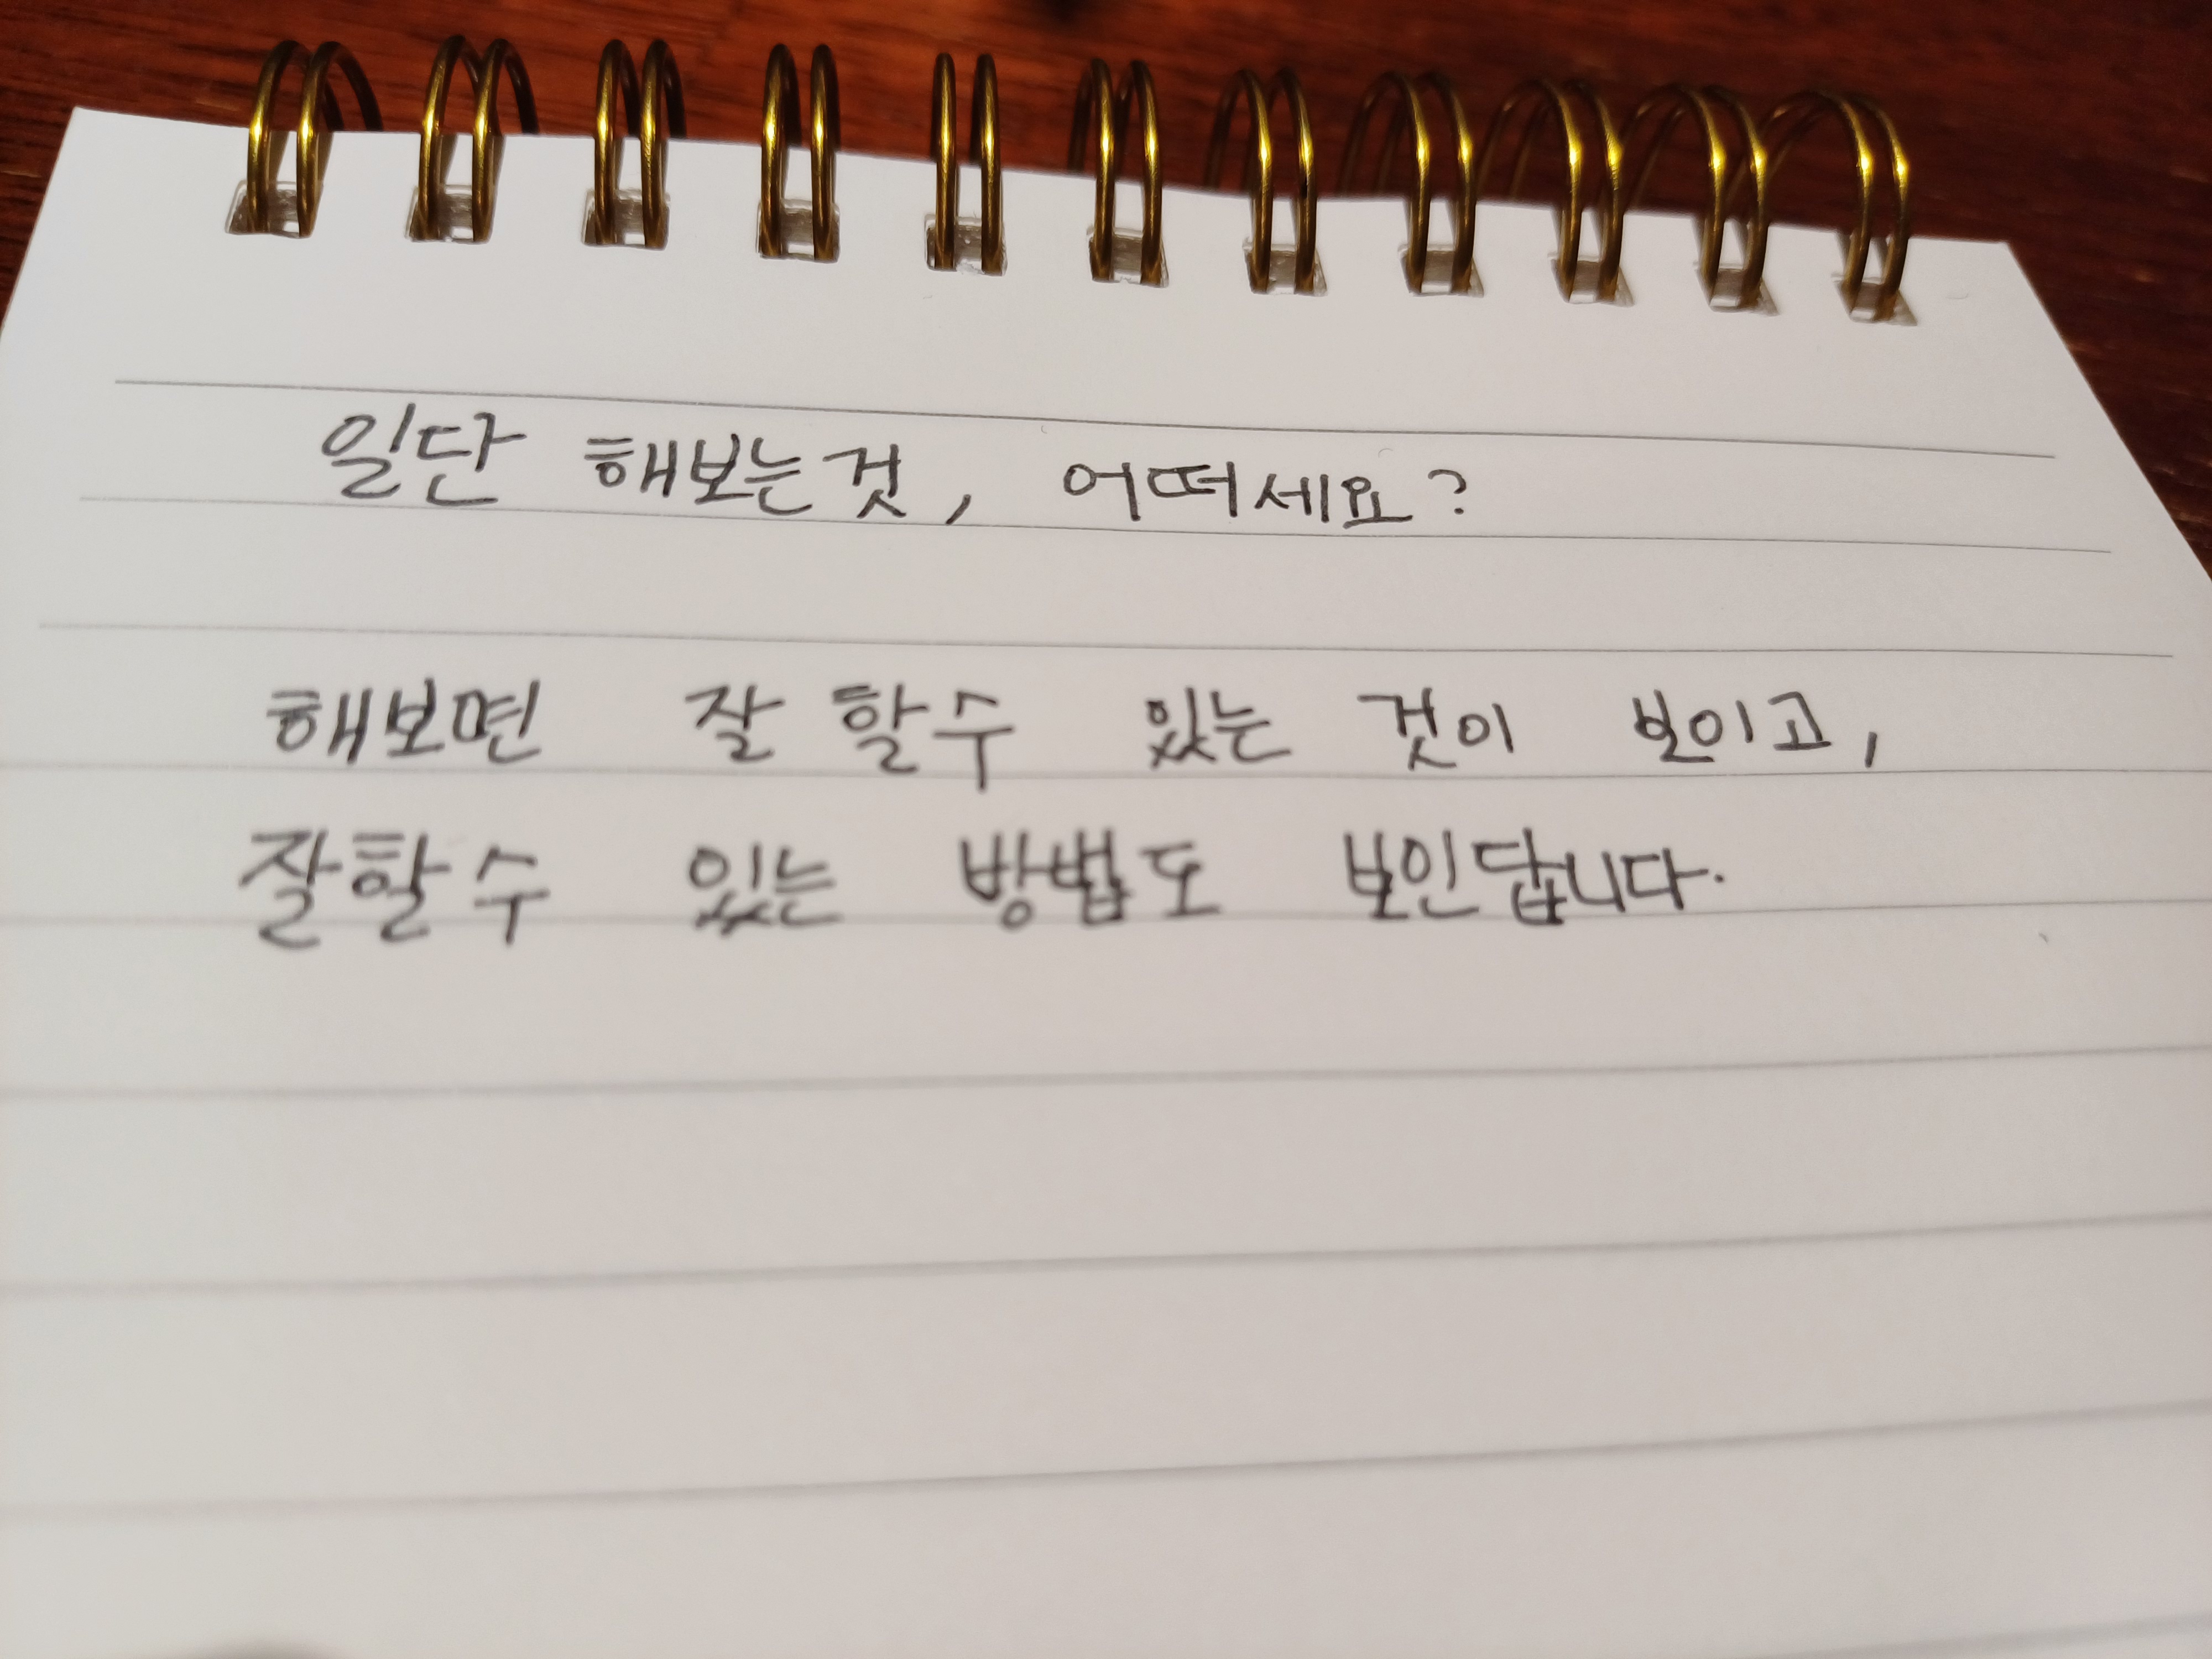 일단 해보는것, 어떠세요?
해보면 잘 할수 있는 것이 보이고,
잘할수 있는 방법도 보인답니다.